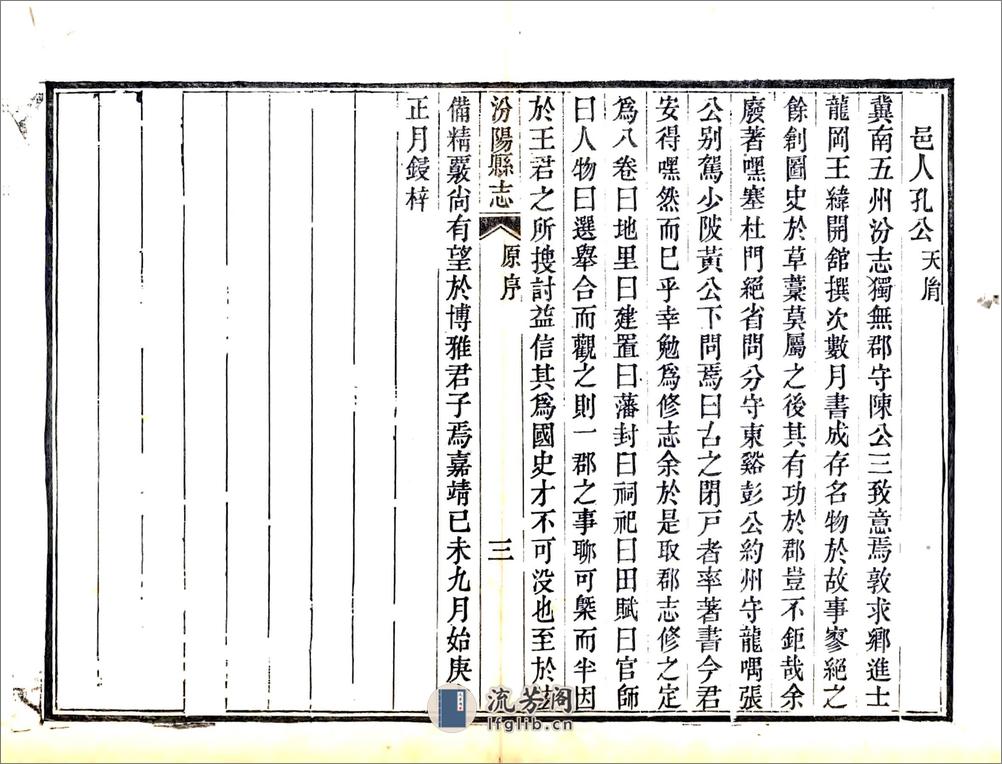 邑人孔公天胤
冀南五州汾志獨無郡守陳公三致意焉敦求鄉進士
龍岡王緯開舘撰次數月書成存名物於故事寥絕之
餘創圖史於草藁莫屬之後其有功於郡豈不鉅哉余
廢著嘿塞杜門絕省問分守東谿彭公約州守龍嵎張
公別駕少陂黃公下問焉曰古之閉戸者率著書今君
安得嘿然而已乎幸勉爲修志余於是取郡志修之定
爲八卷曰地里曰建置曰藩封曰祠祀曰田賦曰官師
曰人物曰選舉合而觀之則一郡之事聊可槩而半因
於王君之所搜討益信其爲國史才不可没也至於
汾陽縣志 原序 三
備精覈尚有望於博雅君子焉嘉靖已未九月始庚
正月鋟梓
流芳阁
lfglib.cn